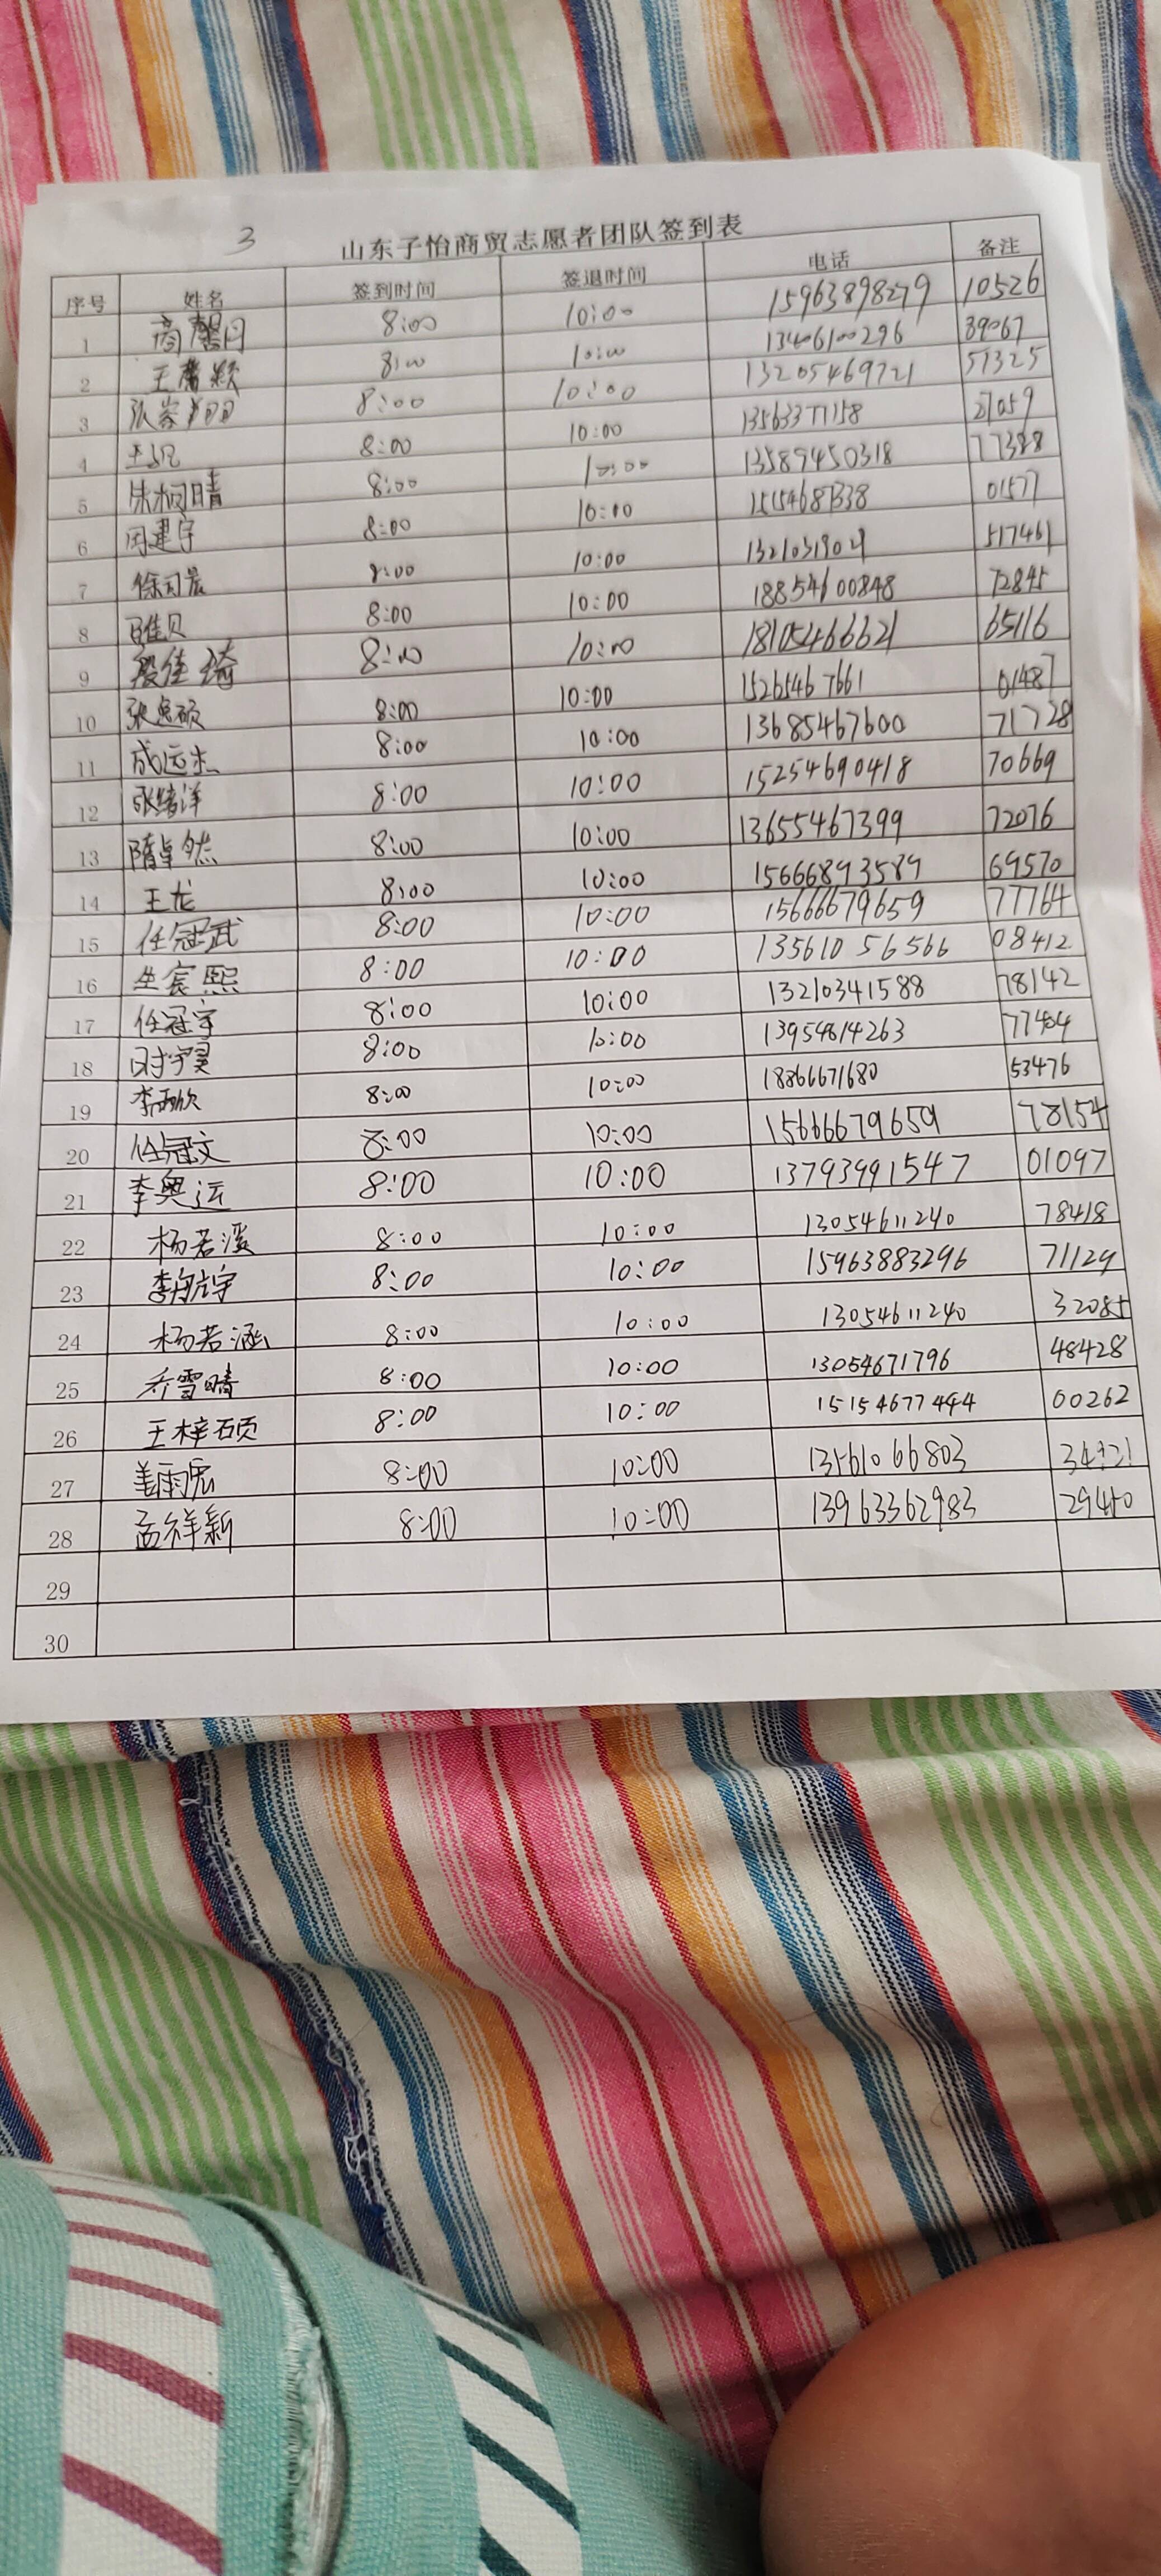 3
山东子怡商贸志愿者团队签到表
序号 姓名 签到时间 签退时间 电话 备注
1 商馨月 8:00 10:00 15963898279 10526
2 王馨颖 8:00 10:00 13406100296 39067
3 张家 8:00 10:00 13205469721 51325
4 8:00 10:00 13563377158 21059
5 朱桐晴 8:00 10:00 13589450318 77388
6 周建宇 8:00 10:00 01577
7 徐司晨 8:00 10:00 517461
8 贝 8:00 10:00 18854600848 72845
9 殷佳琦 8:00 10:00 18105466621 65116
10 张 硕 8:00 10:00 15265467661 01487
11 成远杰 8:00 10:00 13685467600 71728
12 张绪洋 8:00 10:00 15254690418 70669
13 隋卓然 8:00 10:00 13655467399 72076
14 王龙 8:00 10:00 15666893589 69570
15 任冠武 8:00 10:00 15666679659 77764
16 宸熙 8:00 10:00 13561056566 08412
17 任冠宇 8:00 10:00 13210341588 78142
18 宇昊 8:00 10:00 13954814263 77404
19 李雨欣 8:00 10:00 18866671680 53476
20 任冠文 8:00 10:00 15666679659 78154
21 李奥运 8:00 10:00 13793991547 01097
22 杨若溪 8:00 10:00 13054611240 78418
23 李航宇 8:00 10:00 15963883296 71129
24 杨若涵 8:00 10:00 13054611240 32085
25 乔雪晴 8:00 10:00 13054671796 48428
26 王梓硕 8:00 10:00 15154677494 00262
27 姜雨宏 8:00 10:00 13561066803
28 孟祥新 8:00 10:00 13963362983 29450
29
30